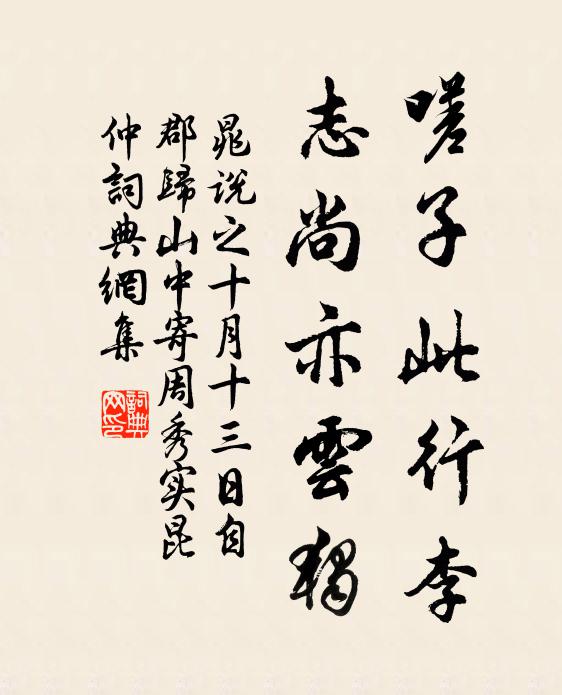 嗟子此行李
志尚亦雲獨
晁说之十月十三日自
郡歸山中寄周秀实昆
仲詞典網集
詞典
网印